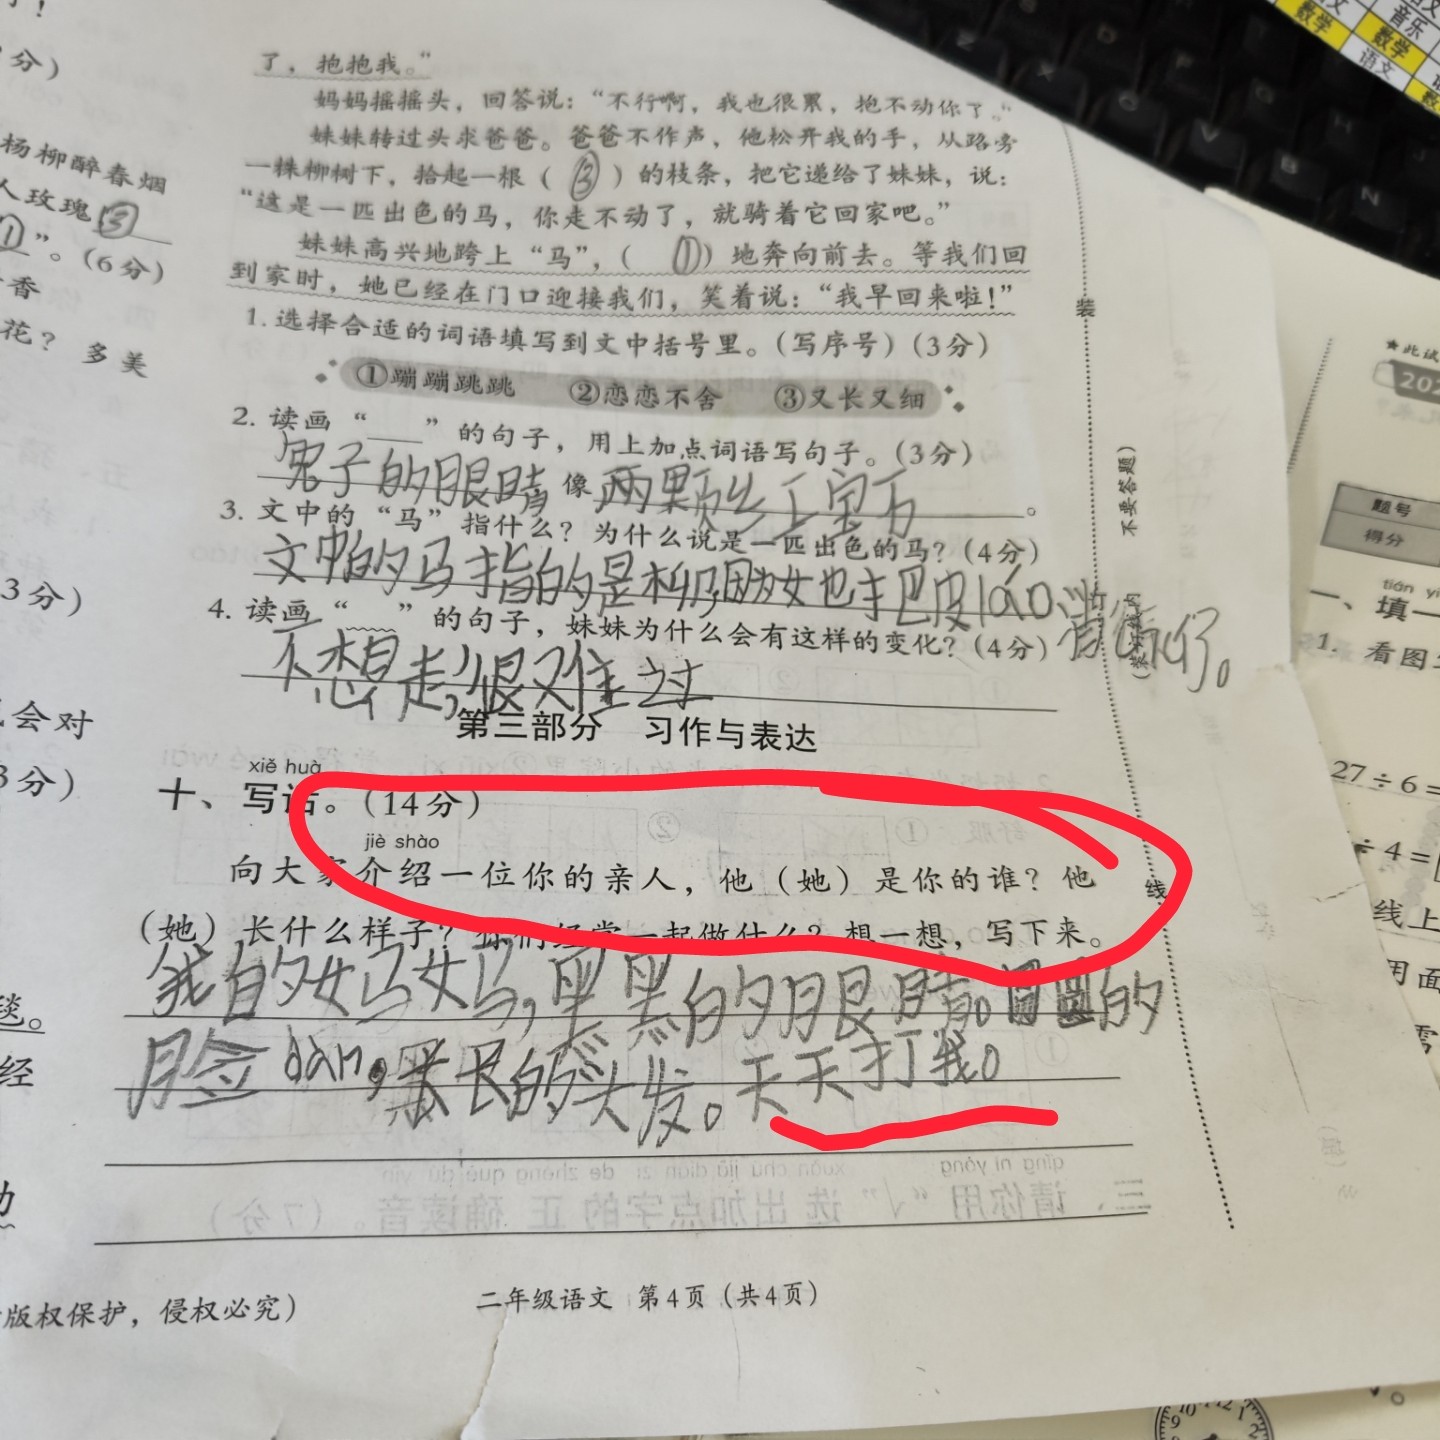 了，抱抱我。”
妈妈摇摇头，回答说：“不行啊，我也很累，抱不动你了。”
妹妹转过头求爸爸。爸爸不作声，他松开我的手，从路旁
一株柳树下，拾起一根（ ③ ）的枝条，把它递给了妹妹，说：
“这是一匹出色的马，你走不动了，就骑着它回家吧。”
妹妹高兴地跨上“马”，（ ① ）地奔向前去。等我们回
到家时，她已经在门口迎接我们，笑着说：“我早回来啦！”
1. 选择合适的词语填写到文中括号里。（写序号）（3分）
①蹦蹦跳跳 ②恋恋不舍 ③又长又细
2. 读画“___”的句子，用上加点词语写句子。（3分）
兔子的眼睛 像 两颗红宝石 。
3. 文中的“马”指什么？为什么说是一匹出色的马？（4分）
文中的马指的是柳,因为女也把皮
4. 读画“﹏”的句子，妹妹为什么会有这样的变化？（4分）
不想走,很难过
第三部分 习作与表达
xiě huà
十、写话。（14分）
jiè shào
向大家介绍一位你的亲人，他（她）是你的谁？他
（她）长什么样子？你们经常一起做什么？想一想，写下来。
我的妈妈,黑黑的眼睛。圆圆的
脸dàn,黑长的头发。天天打我。
二年级语文 第4页（共4页）
版权保护，侵权必究）
分）
杨柳醉春烟
人玫瑰③
①”。（6分）
香
花？多美
3分）
会对
3分）
经
装
线
不要答题）
★此试
202
题号
得分
tián
一、填一
1. 看图
27÷6=
÷4=
线上
用面
数学
音乐
数学
语文